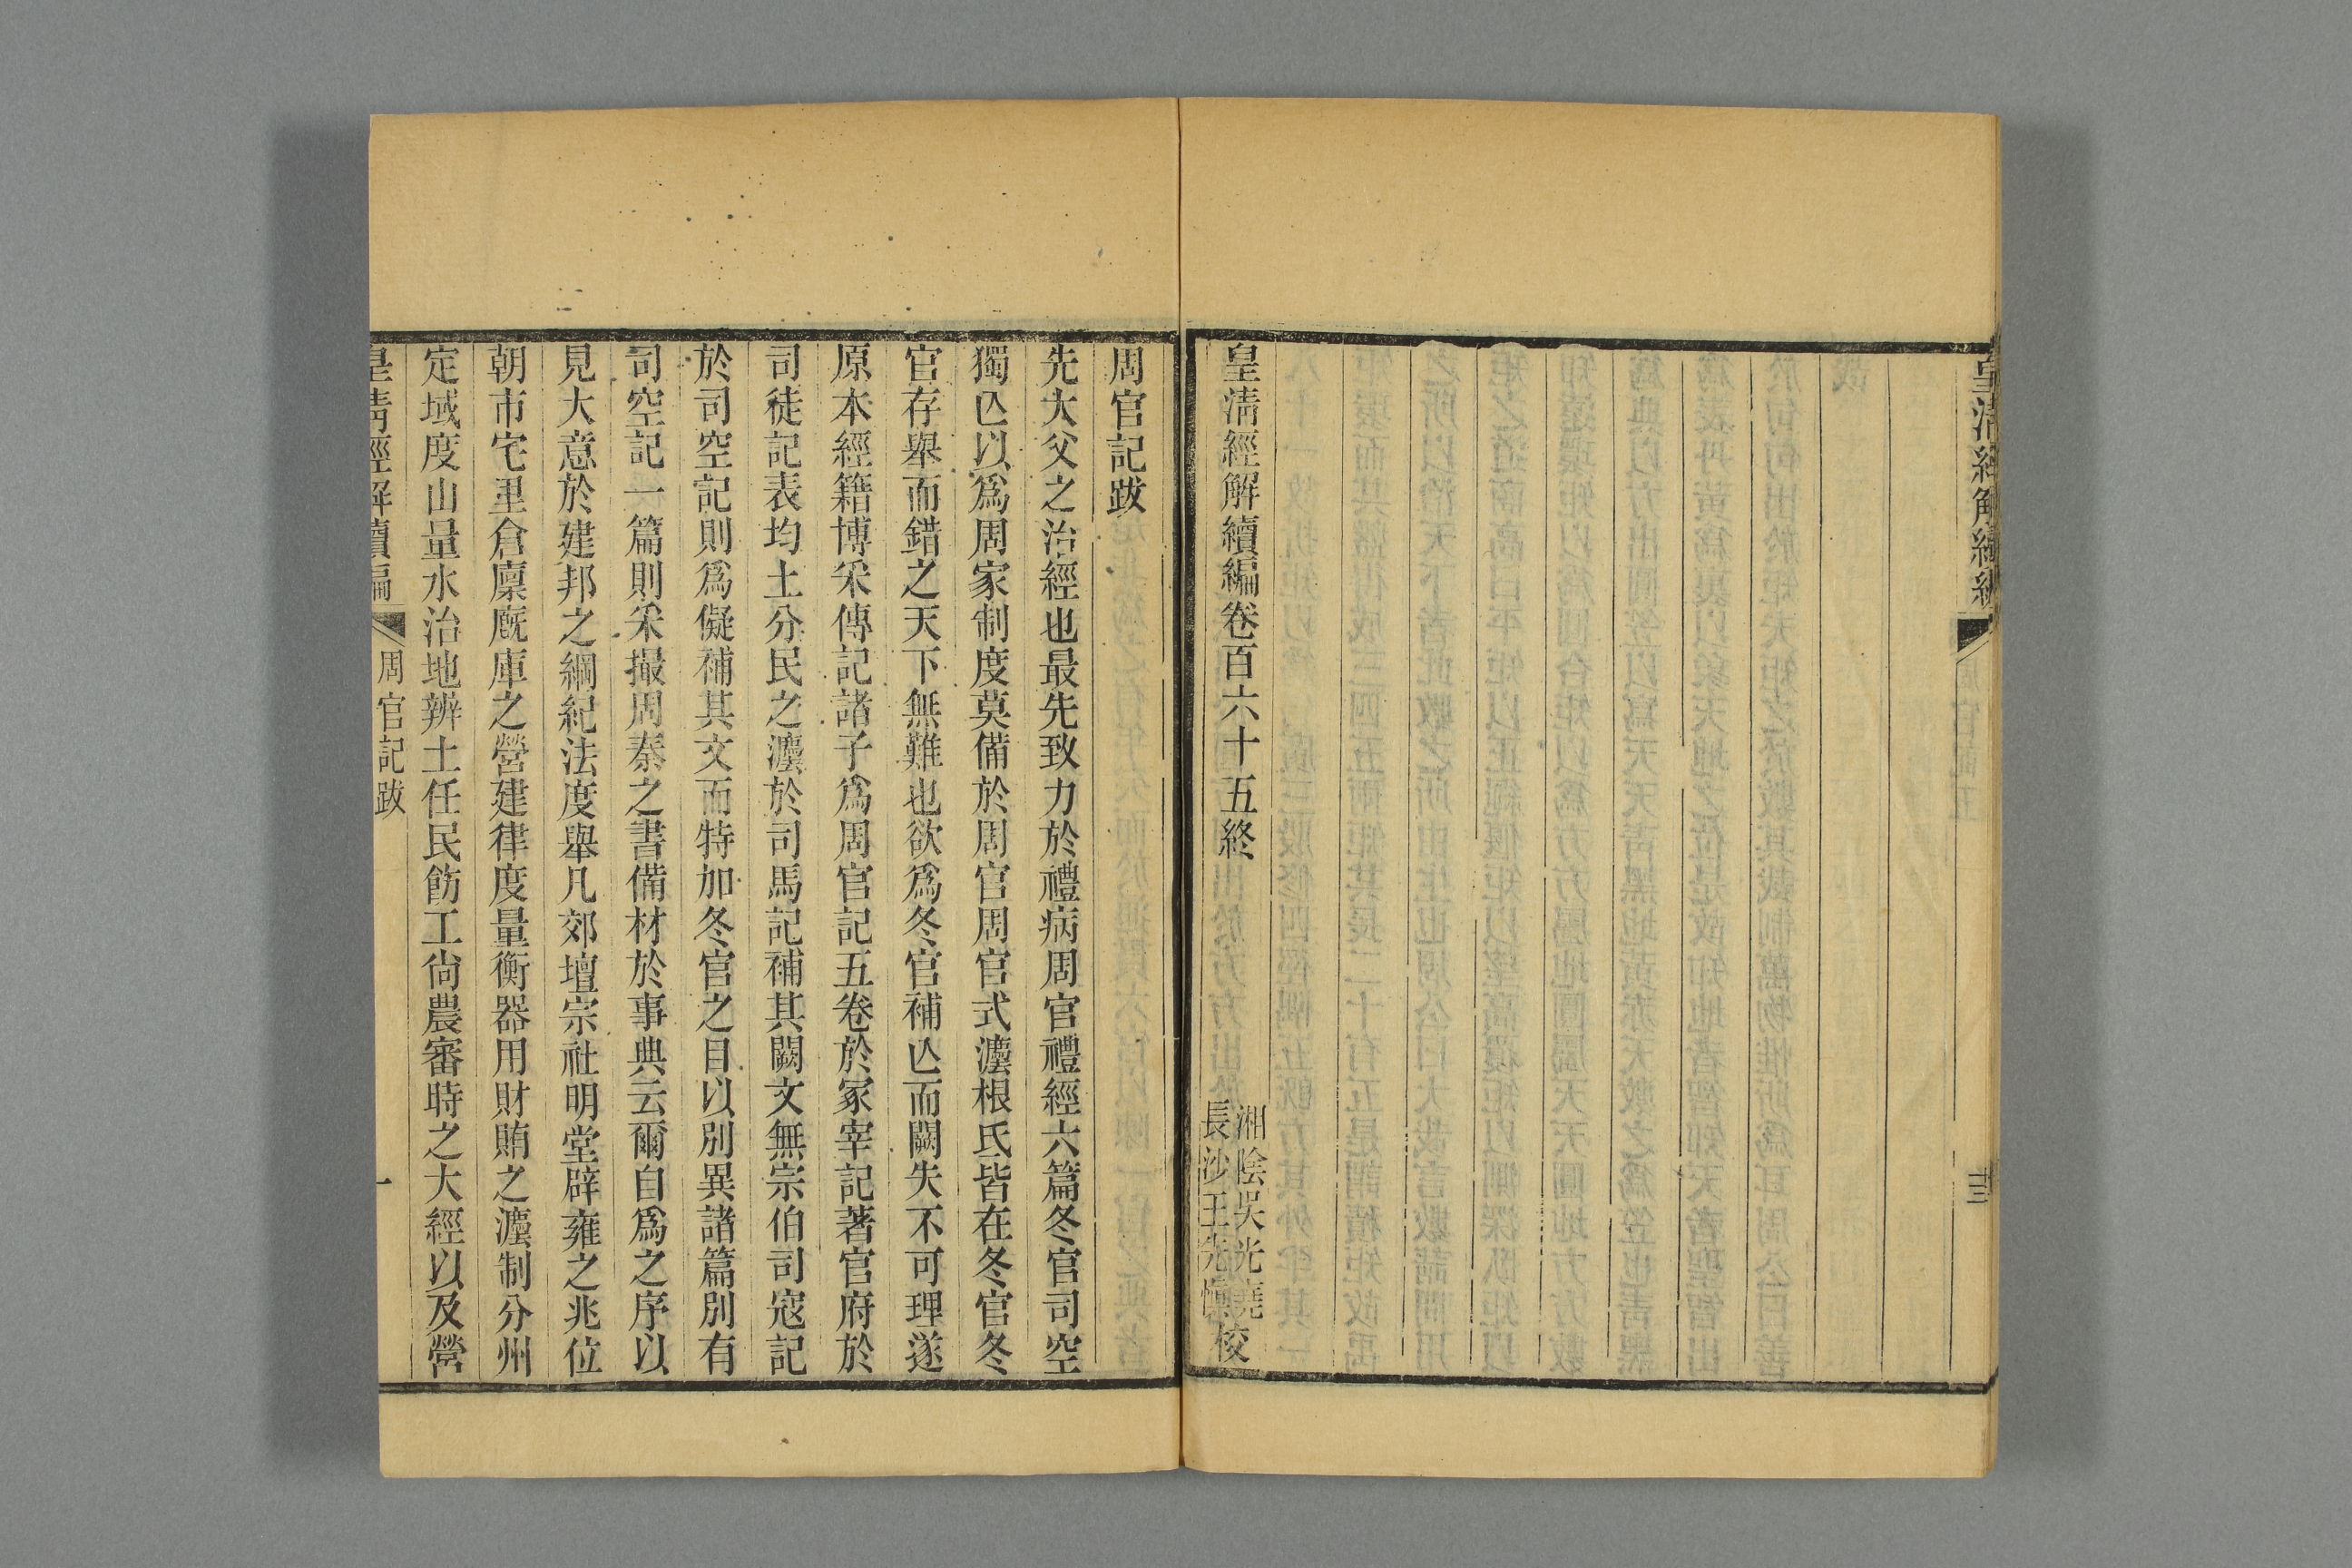 皇清經解續編
周官記五
十三
皇清經解續編卷百六十五終
湘陰吳光堯
長沙王先愼
校
周官記跋
先大父之治經也最先致力於禮病周官禮經六篇冬官司空
獨亾以爲周家制度莫備於周官周官式灋根氐皆在冬官冬
官存舉而錯之天下無難也欲爲冬官補亾而闕失不可理遂
原本經籍博采傳記諸子爲周官記五卷於冢宰記著官府於
司徒記表均土分民之灋於司馬記補其闕文無宗伯司寇記
於司空記則爲儗補其文而特加冬官之目以別異諸篇別有
司空記一篇則采撮周秦之書備材於事典云爾自爲之序以
見大意於建邦之綱紀法度舉凡郊壇宗社明堂辟雍之兆位
朝市宅里倉廩廐庫之營建律度量衡器用財賄之灋制分州
定域度山量水治地辨土任民飭工尙農審時之大經以及營
皇清經解續編
周官記跋
一